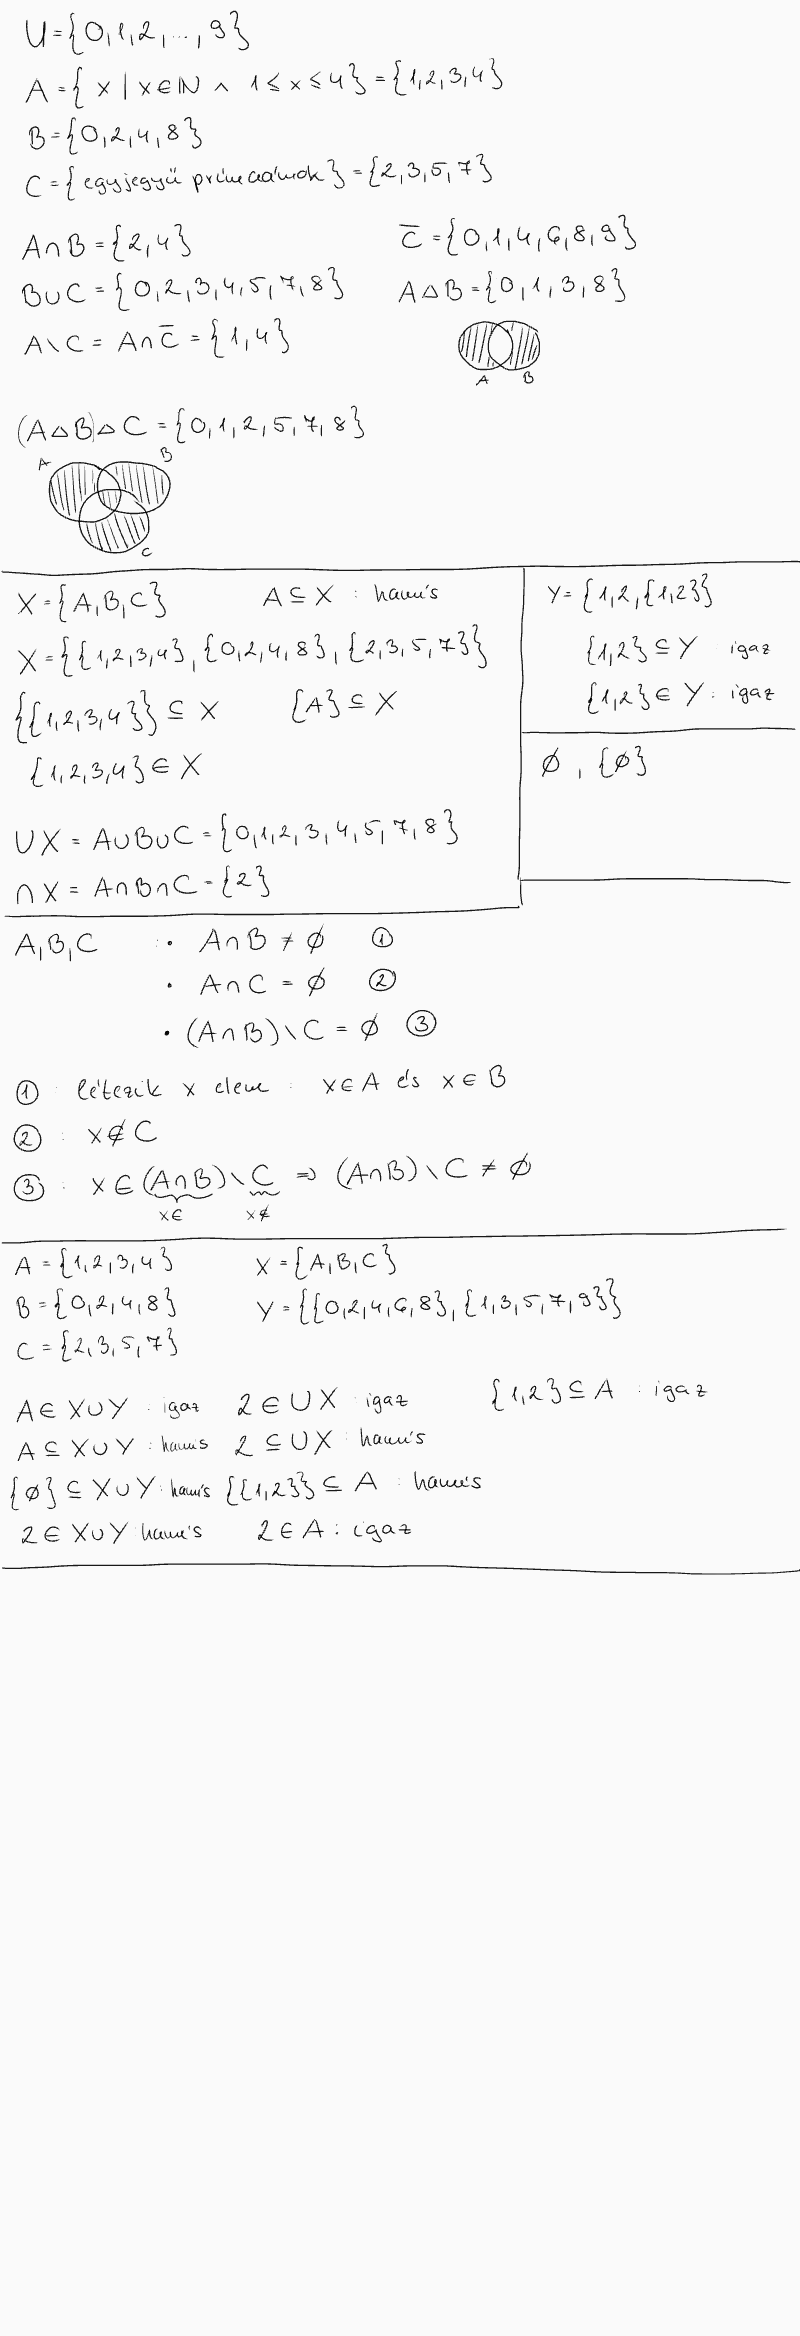 U={0,1,2,...,9}
A={x|x∈ℕ ∧ 1≤x≤4}={1,2,3,4}
B={0,2,4,8}
C={egyjegyű prímszámok}={2,3,5,7}
A∩B={2,4}
C̅={0,1,4,6,8,9}
B∪C={0,2,3,4,5,7,8}
A△B={0,1,3,8}
A\C=A∩C̅={1,4}
A B
(A△B)△C={0,1,2,5,7,8}
A B
C
X={A,B,C} A⊆X : hamis
X={{1,2,3,4},{0,2,4,8},{2,3,5,7}}
{{1,2,3,4}}⊆X {A}⊆X
{1,2,3,4}∈X
∪X=A∪B∪C={0,1,2,3,4,5,7,8}
∩X=A∩B∩C={2}
Y={1,2,{1,2}}
{1,2}⊆Y igaz
{1,2}∈Y: igaz
∅, {∅}
A,B,C : • A∩B≠∅ ①
• A∩C=∅ ②
• (A∩B)\C=∅ ③
① : létezik x elem : x∈A és x∈B
② : x∉C
③ : x∈(A∩B)\C ⇒ (A∩B)\C≠∅
x∈ x∉
A={1,2,3,4} X={A,B,C}
B={0,2,4,8} Y={{0,2,4,6,8},{1,3,5,7,9}}
C={2,3,5,7}
A∈X∪Y : igaz 2∈∪X : igaz {1,2}⊆A : igaz
A⊆X∪Y : hamis 2⊆∪X : hamis
{∅}⊆X∪Y : hamis {{1,2}}⊆A : hamis
2∈X∪Y : hamis 2∈A : igaz